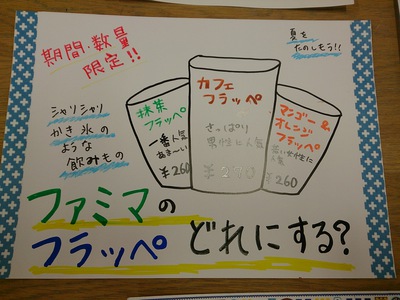 期間・数量
限定!!
夏を
たのしもう!!
シャリシャリ
かき氷の
ような
飲みもの
抹茶
フラッペ
一番人気
あま〜い
¥260
カフェ
フラッペ
さっぱり
男性に人気
¥270
マンゴー&
オレンジ
フラッペ
若い女性に
人気
¥260
ファミマの
フラッペ どれにする?